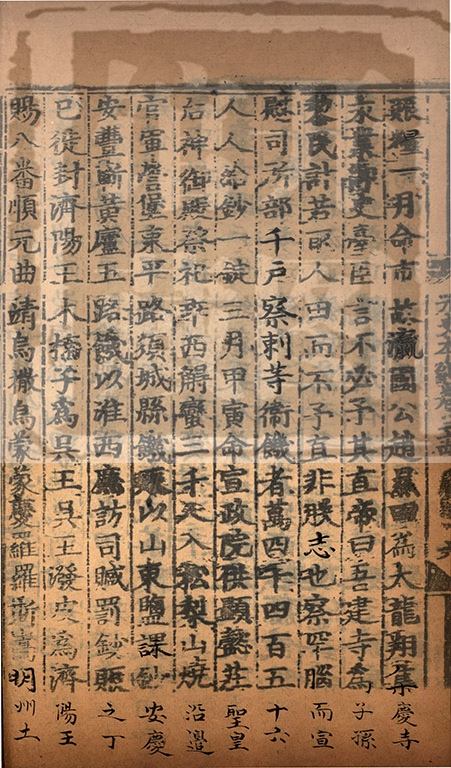 賑糧一月命市故瀛國公趙㬎田爲大龍翔集慶寺
永業御史臺臣言不必予其直帝曰吾建寺爲子孫
黎民計若取人田而不予直非朕志也察罕腦而宣
慰司所部千戶察剌等衛饑者萬四千四百五十六
人人給鈔一錠三月甲寅命宣政院供顯懿莊聖皇
后神御殿祭祀乖西䚩蠻三千人入松梨山燒沿邊
官軍營堡東平路須城縣饑賑以山東鹽課鈔安慶
安豐蘄黃廬五路饑以淮西廉訪司贓罰鈔賑之丁
巳徙封濟陽王木楠子爲吳王吳王潑皮爲濟陽王
賜八番順元曲靖烏撒烏蒙蒙慶羅羅斯嵩明州土